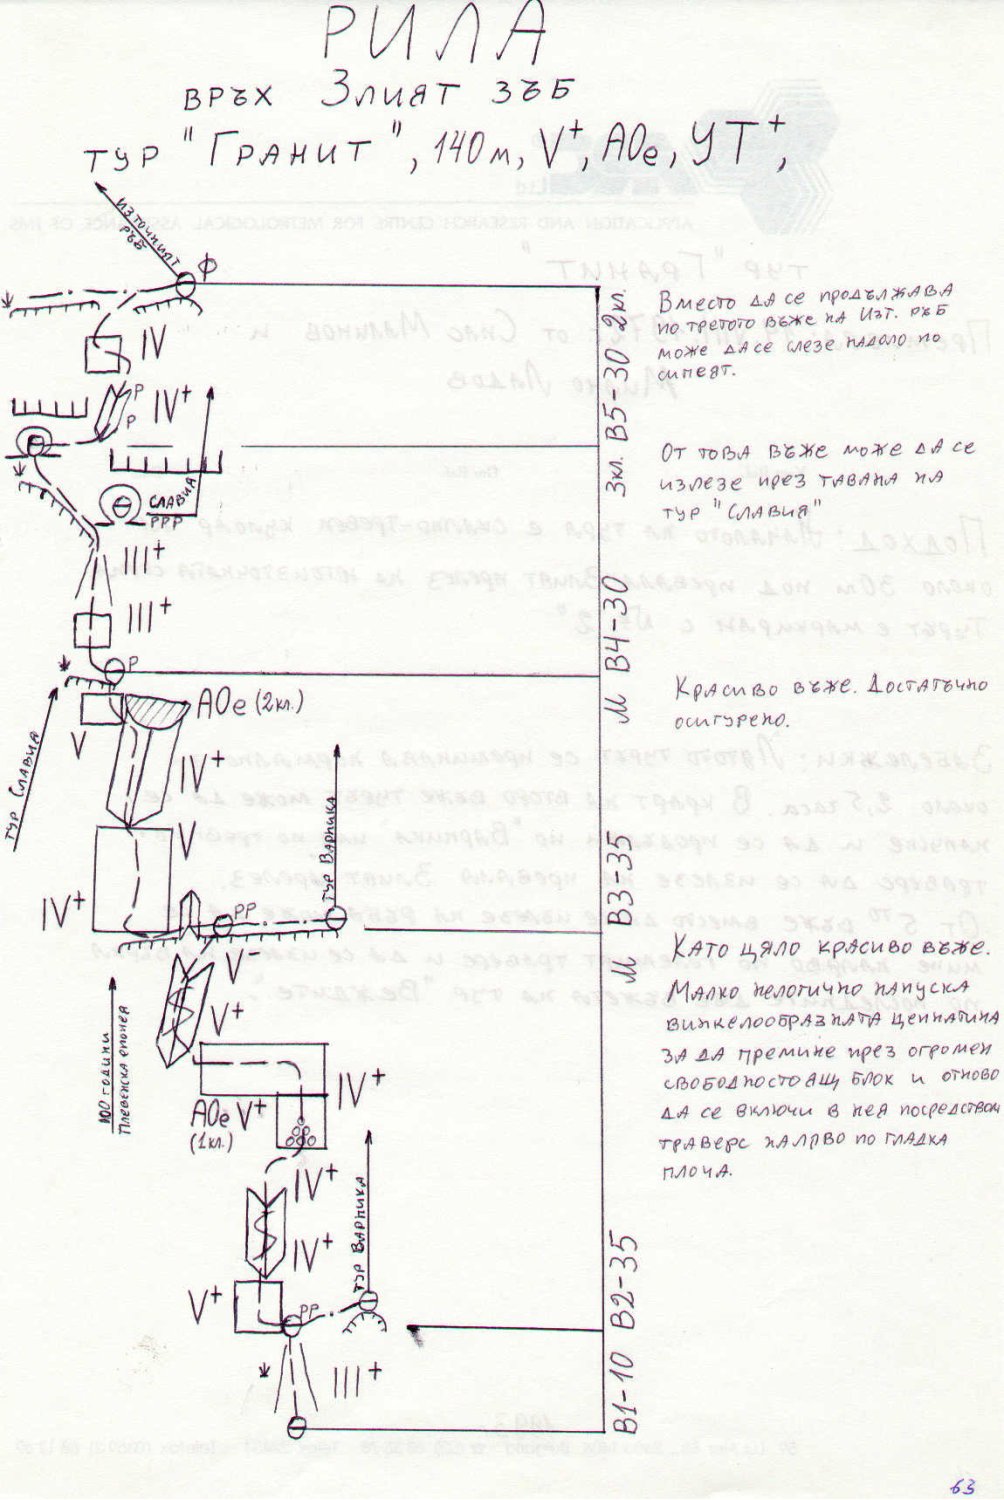 РИЛА
ВРЪХ Злият ЗЪБ
ТУР "ГРАНИТ", 140м, V+, A0e, УТ+,
ИЗТОЧНИЯТ
РЪБ
Ф
IV
P
P
IV+
СЛАВИЯ
PPP
III+
III+
P
A0e (2кл.)
V
IV+
ТУР СЛАВИЯ
V
IV+
ТУР ВАРНИКА
PP
V
V+
100 години
Плевенска опонер
IV+
A0e V+
(1кл.)
IV+
IV+
ТУР ВАРНИКА
V+
PP
III+
B5-30 2кл.
B4-30 3кл.
B3-35 М
B2-35 М
B1-10
Вместо да се продължава
по третото въже на Изт. ръб
може да се слезе надоло по
сипеят.
От това въже може да се
излезе през тавана на
тур "Славия"
Красиво въже. Достатъчно
осигурено.
Като цяло красиво въже.
Малко нелогично напуска
винкелообразната цепнатина
за да премине през огромен
свободностоящ блок и отново
да се включи в нея посредством
траверс налрво по гладка
плоча.
63